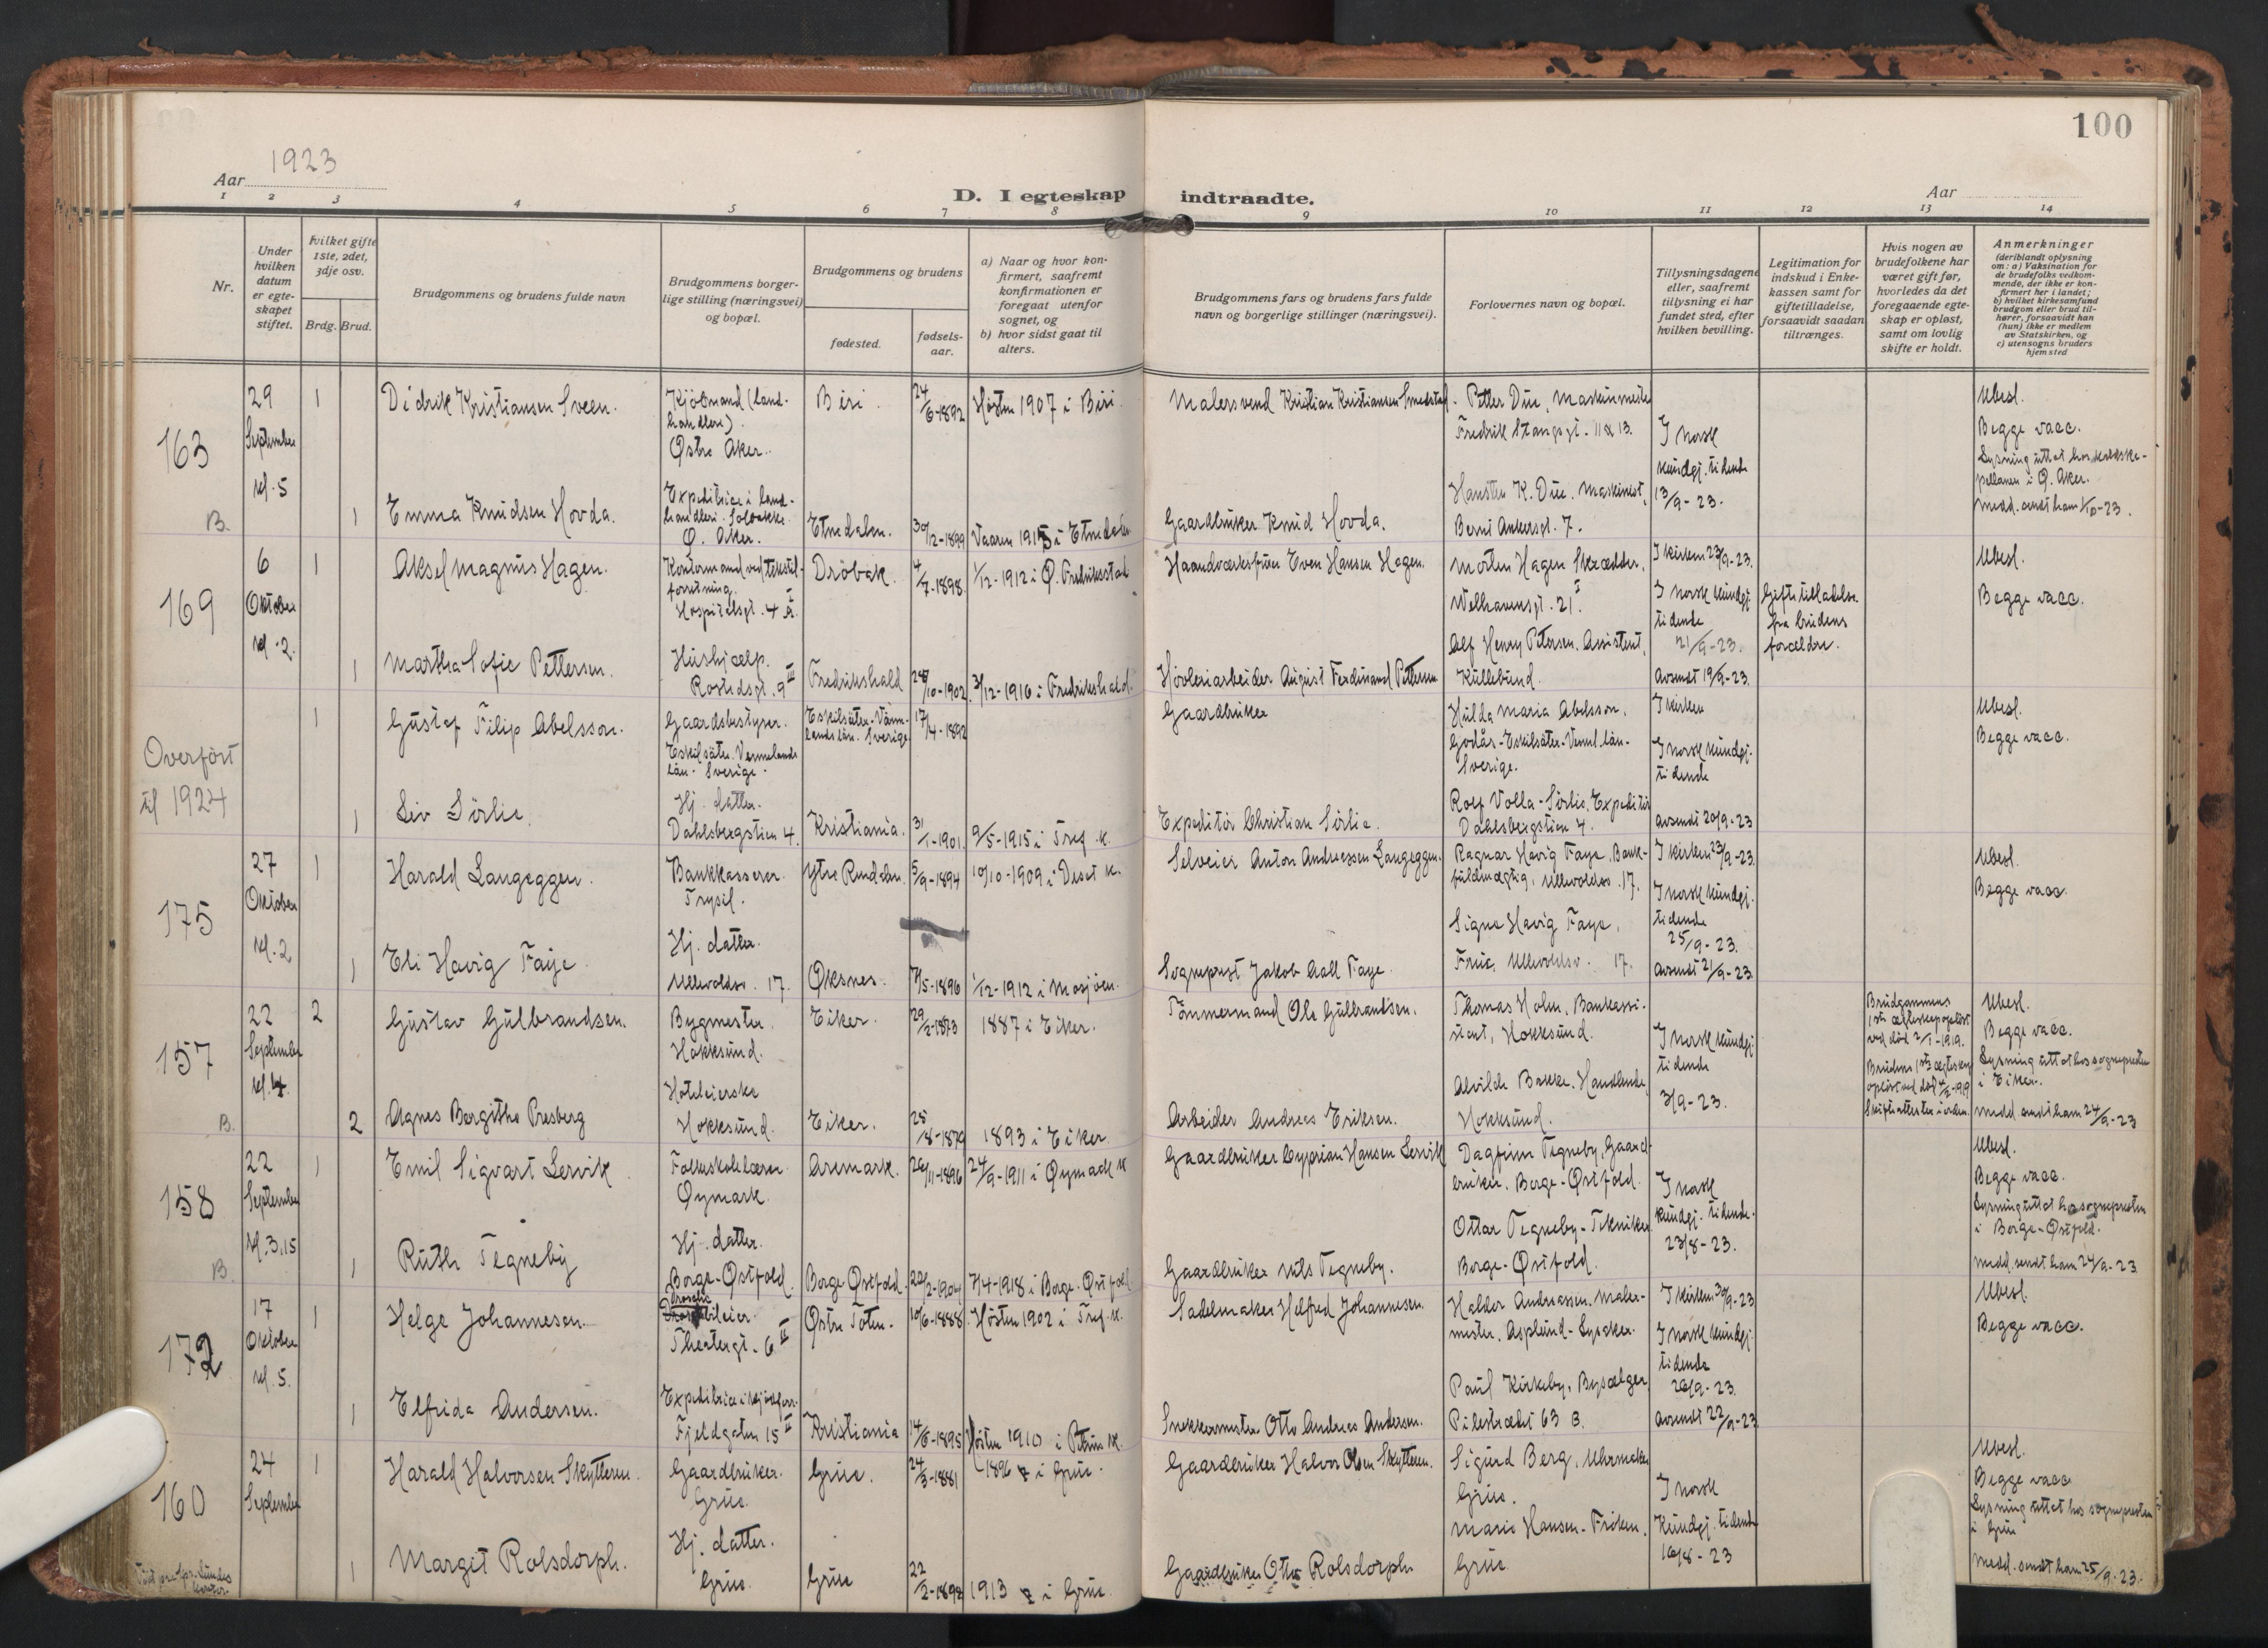 100
Aar 1923
D. I egteskap indtraadte.
Aar
1 2 3 4 5 6 7 8 9 10 11 12 13 14
Nr.
Under hvilken datum er egteskapet stiftet.
Hvilket gifte 1ste, 2det, 3dje osv.
Brdg. Brud.
Brudgommens og brudens fulde navn
Brudgommens borgerlige stilling (næringsvei) og bopæl.
Brudgommens og brudens
fødested.
fødselsaar.
a) Naar og hvor konfirmert, saafremt konfirmationen er foregaat utenfor sognet, og
b) hvor sidst gaat til alters.
Brudgommens fars og brudens fars fulde navn og borgerlige stillinger (næringsvei).
Forlovernes navn og bopæl.
Tillysningsdagene eller, saafremt tillysning ei har fundet sted, efter hvilken bevilling.
Legitimation for indskud i Enkekassen samt for giftetilladelse, forsaavidt saadan tiltrænges.
Hvis nogen av brudefolkene har været gift før, hvorledes da det foregaaende egteskap er opløst, samt om lovlig skifte er holdt.
Anmerkninger (deriblandt oplysning om: a) Vaksination for de brudefolks vedkommende, der ikke er konfirmert her i landet; b) hvilket kirkesamfund brudgom eller brud tilhører, forsaavidt han (hun) ikke er medlem av Statskirken, og c) utensogns bruders hjemsted
163
29 September kl. 5
1
Didrik Kristiansen Sveen.
Kjöbmand (landhandleri). Østre Aker.
Biri.
24/6-1892
Høsten 1907 i Biri.
Malersvend Kristian Kristiansen Smedstad.
Petter Due, Maskinmester
Fredrik Stangsgt. 11 & 13.
I norsk kundgj. tidende 13/9-23.
Ubesl.
Begge vacc.
medd. sendt ham 1/10-23.
B.
1
Emma Knudsen Hovda.
Expeditrice i landhandleri. Solbakke. Ø. Aker.
Etnedalen.
30/12-1899
Vaaren 1915 i Etnedalen
Gaardbruker Knud Hovda.
Hansten K. Due. Maskinist,
Bernt Ankersgt. 7.
169
6 Oktober kl. 2.
1
Aksel Magnus Hagen.
Hospitalsgt. 4
Dröbak.
4/7-1898.
1/12-1912 i Ø. Fredriksstad
Even Hansen Hagen.
Morten Hagen Skrædder,
Welhavensgt. 21 I.
I kirken 23/9-23.
I norsk kundgj. tidende 21/9-23.
Avsendt 19/9-23.
Giftetilladelse fra brudens forældre.
Ubesl.
Begge vacc.
1
Martha Sofie Pettersen.
Hushjælp.
Rostedsgt. 9 III
Fredrikshald
3/12-1916 i Fredrikshald.
Høvleriarbeider August Ferdinand Pettersen
Alf Henry Petersen. Assistent,
Kullebund.
Overført til 1924
1
Gustaf Filip Abelsson.
Gaardsbestyrer.
Eskilsäter. Vermelands län. Sverige.
Eskilsäter. Värmlands län. Sverige
17/4-1892
Gaardbruker
Hulda Maria Abelsson,
Godås-Eskilsäter-Verml. län-Sverige.
I kirken
I norsk kundgj. tidende
avsendt 20/9-23
Ubesl.
Begge vacc.
1
Liv Sörlie.
Hj. datter.
Dahlsbergstien 4.
Kristiania.
31/1-1901.
9/5-1915 i Tref. k.
Expeditör Christian Sörlie.
Rolf Volla-Sörlie. Expeditör
Dahlsbergstien 4.
175
27 Oktober kl. 2
1
Harald Langeggen.
Bankkasserer. Trysil.
Ytre Rendalen.
5/9-1894
10/10-1909 i Deset k.
Selveier Anton Andreassen Langeggen.
Ragnar Havig Faye, Bankfuldmægtig, Ullevoldsv. 17.
I kirken 23/9-23.
I norsk kundgj. tidende 25/9-23.
avsendt 21/9-23.
Ubesl.
Begge vacc.
1
Eli Havig Faye.
Hj. datter.
Ullevoldsv. 17.
Øksnes.
7/5-1896
1/12-1912 i Mosjöen.
Sogneprest Jakob Aall Faye.
Signe Havig Faye,
Frue, Ullevoldsv. 17.
157
22 September kl. 4.
2
Gustav Gulbrandsen.
Bygmester. Hokksund.
Eiker.
29/2-1873
1887 i Eiker.
Tömmermand Ole Gulbrandsen.
Thomas Holm, Bankassistent, Hokksund.
I norsk kundgj. tidende 3/9-23.
Brudgommens 1ste ægteskap oplöst ved död 2/1-1919.
Brudens 1ste ægteskap oplöst ved död
Skifteattester i orden.
Ubesl.
Begge vacc.
Lysning uttat hos sognepresten i Eiker.
medd. sendt ham 24/9-23
B.
2
Agnes Bergithe Presberg
Hoteleierske Hokksund.
Eiker.
25/8-1879
1893 i Eiker.
Arbeider Andreas Eriksen.
Alvilde Bakke. Handlende
Hokksund.
158
22 September kl. 3.15
1
Emil Sigvart Lervik
Folkeskolelærer. Øymark.
Aremark.
26/11-1896
24/9-1911 i Øymark k
Gaardbruker Cyprian Hansen Lervik
Dagfinn Tegneby, Gaardbruker. Borge-Østfold.
I norsk kundgj. tidende. 23/8-23.
Ubesl.
Begge vacc.
Lysning uttat hos sognepresten i Borge-Østfold.
medd. sendt ham 24/9-23
B.
1
Ruth Tegneby
Hj. datter.
Borge-Østfold.
Borge Østfold.
7/4-1918 i Borge-Østfold
Gaardbruker Nils Tegneby.
Ottar Tegneby-Tekniker
Borge-Østfold.
172
17 Oktober kl. 5.
1
Helge Johannesen.
Theatergt. 6 II
Østre Toten.
10/6-1888
Høsten 1902 i Tref. k.
Sadelmaker Helfred Johannesen.
Haldor Andreassen. Malermester, Asplund-Lysaker.
I kirken 30/9-23
I norsk kundgj. tidende 26/9-23.
avsendt 22/9-23
Ubesl.
Begge vacc.
1
Elfrida Andersen.
Fjeldgaten 15 II
Kristiania
Høsten 1910 i Petrus k.
Snekkermester Otto Andreas Andersen.
Paul Kirkeby, Bysælger,
Pilestrædet 63 B.
160
24 September
1
Harald Halvorsen Skytteren.
Gaardbruker. Grue.
Grue.
24/3-1881
1896 i Grue.
Gaardbruker Halvor Olsen Skytteren.
Sigurd Berg, Uhrmaker
Grue.
I norsk kundgj. tidende 16/8-23
Ubesl.
Begge vacc
Lysning uttat hos sognepresten i Grue
medd. sendt ham 25/9-23.
1
Margit Rolsdorph.
Hj. datter. Grue.
Grue
22/2-1898
1913 i Grue.
Gaardbruker Otto Rolsdorph
Marie Hansen-Fröken,
Grue